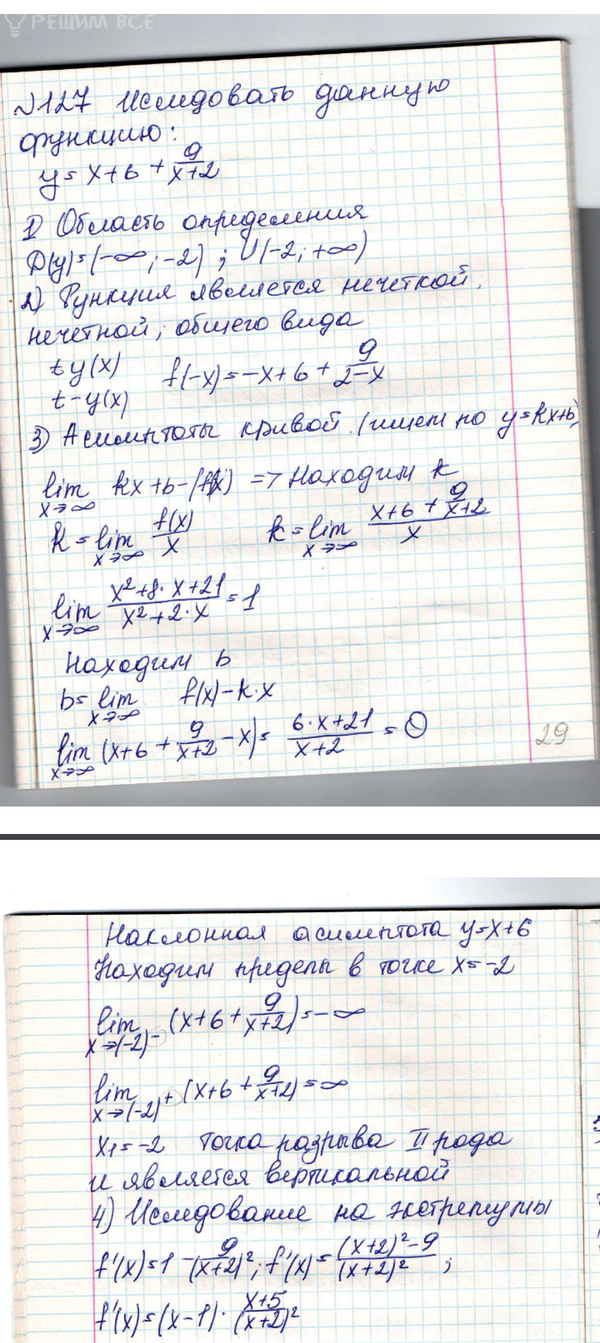 РЕШИМ ВСЕ
№127 Исследовать данную
функцию:
y = x+6 + 9/(x+2)
1) Область определения
D(y)=(-∞; -2) ; U(-2; +∞)
2) Функция является нечеткой,
нечетной, общего вида
≠ y(x)
≠ -y(x) f(-x) = -x+6 + 9/(2-x)
3) Асимптоты кривой (ищем по y=kx+b)
lim x→∞ kx+b-f(x) => Находим k
k = lim x→∞ f(x)/x k = lim x→∞ (x+6 + 9/(x+2))/x
lim x→∞ (x²+8·x+21)/(x²+2·x) = 1
Находим b
b = lim x→∞ f(x)-k·x
lim x→∞ (x+6 + 9/(x+2) - x) = (6·x+21)/(x+2) =
29
Наклонная асимптота y=x+6
Находим пределы в точке x=-2
lim x→(-2)- (x+6 + 9/(x+2)) = -∞
lim x→(-2)+ (x+6 + 9/(x+2)) = ∞
x₁ = -2 точка разрыва II рода
и является вертикальной
4) Исследование на экстремумы
f'(x) = 1 - 9/(x+2)²; f'(x) = ((x+2)²-9)/(x+2)² ;
f'(x) = (x-1)·(x+5)/(x+2)²